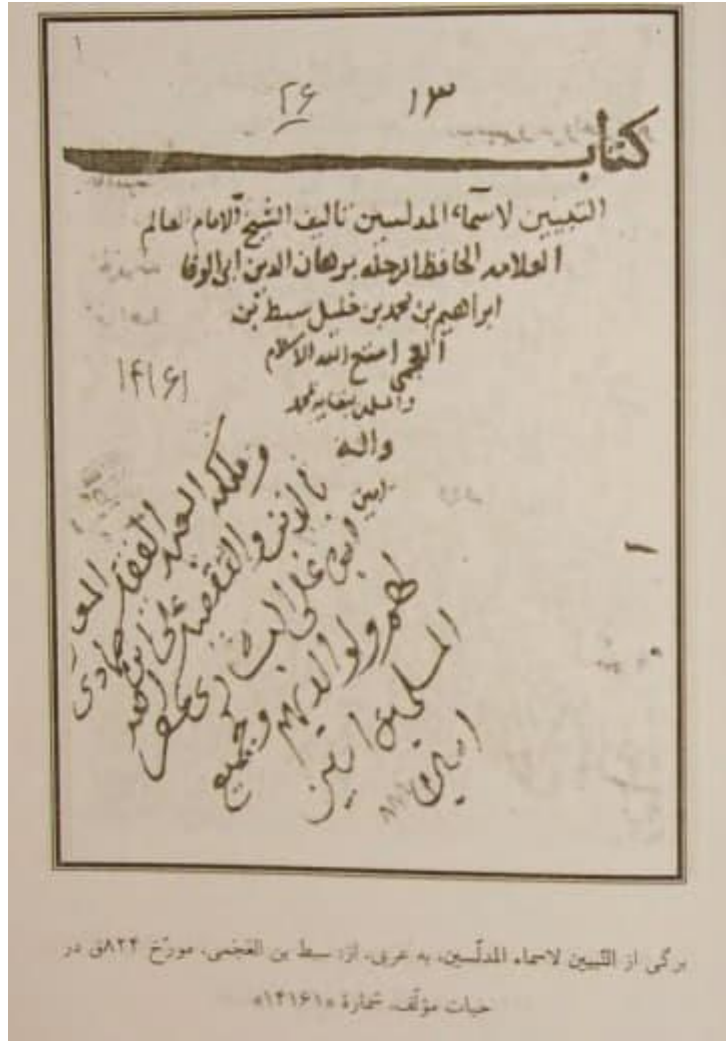 ١
٢۶ ١٣
كتاب
التبيين لاسماء المدلسين تاليف الشيخ الامام العالم
العلامه الحافظ الرحله برهان الدين ابى الوفا
ابراهيم بن محمد بن خليل سبط بن
العجمى امتع الله الاسلام
والمسلمين ببقايه بمحمد
واله
امين
١۴١۶١
وملكه العبد الفقير المعترف
بالذنب والتقصير على بن
لهم ولوالديهم وجميع
المسلمين امين
امين
برگی از التّبیین لاسماء المدلّسین، به عربی، از: سبط بن العَجَمی، مورّخ ۸۲۴ق در
حیات مؤلّف، شمارۀ «۱۴۱۶۱»